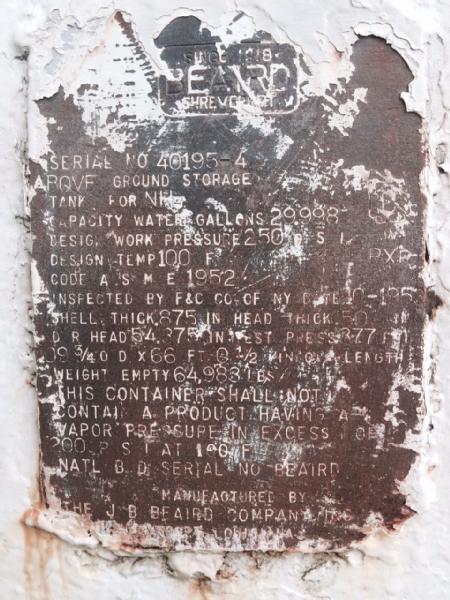 SINCE 1918
BEAIRD
SHREVEPORT
SERIAL NO 40195-4
ABOVE GROUND STORAGE
TANK FOR NH
CAPACITY WATER GALLONS 29998
DESIG WORK PRESSURE 250 P S I
DESIGN TEMP 100 F
CODE A S M E 1952
INSPECTED BY F&C CO. OF NY DATE 10-185
SHELL THICK 875 IN HEAD THICK 50 IN
D R HEAD 54.375 IN TEST PRESS 377
09 3/4 O D X 66 FT 0 1/2 IN O LENGTH
WEIGHT EMPTY 64,983 LBS
THIS CONTAINER SHALL NOT
CONTAIN A PRODUCT HAVING A
VAPOR PRESSURE IN EXCESS OF
200 P S I AT 100 F
NATL B D SERIAL NO BEAIRD
MANUFACTURED BY
THE J B BEAIRD COMPANY INC